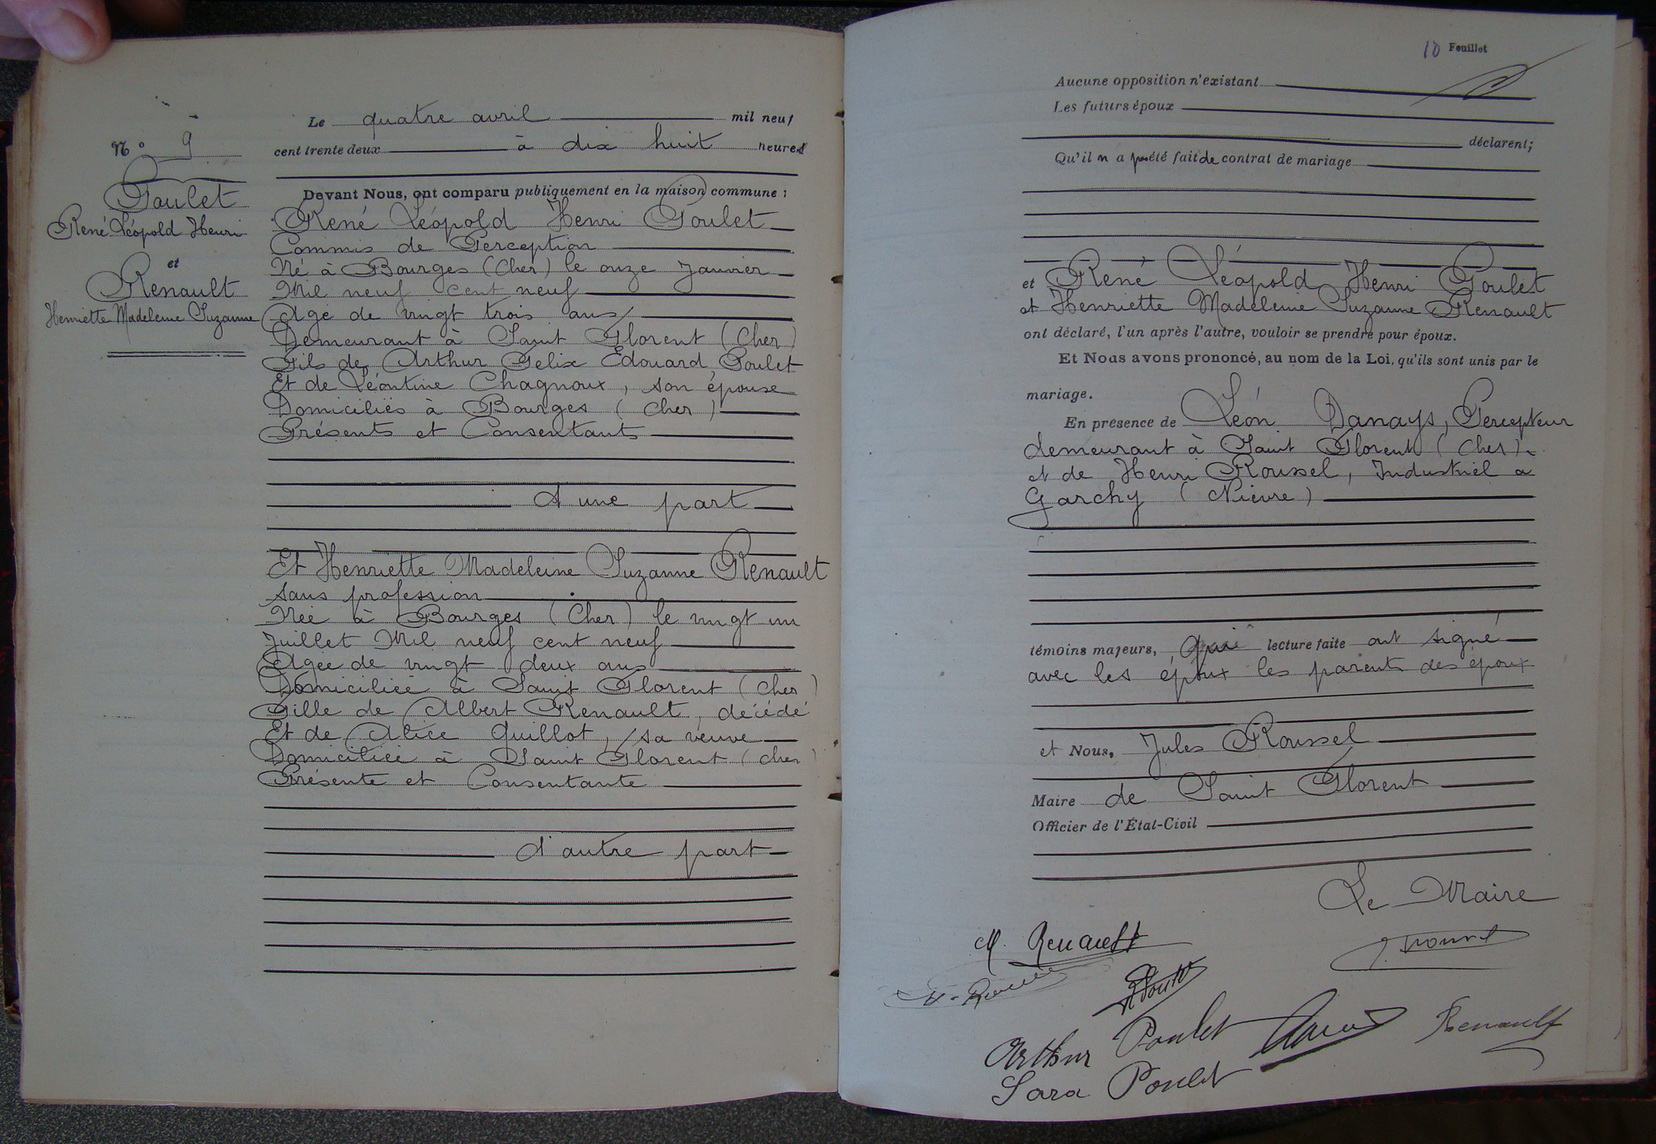 Le quatre avril mil neuf
cent trente deux à dix huit heures
N° 9
Poulet
René Léopold Henri
et
Renault
Henriette Madeleine Suzanne
Devant Nous, ont comparu publiquement en la maison commune :
René Léopold Henri Poulet
Commis de Perception
Né à Bourges (Cher) le onze Janvier
Mil neuf cent neuf
Age de vingt trois ans
Demeurant à Saint Florent (Cher)
Fils de Arthur Felix Edouard Poulet
Et de Léontine Chagnoux, son épouse
Domiciliés à Bourges (Cher)
Présents et Consentants
d'une part
Et Henriette Madeleine Suzanne Renault
sans profession
Née à Bourges (Cher) le vingt un
Juillet Mil neuf cent neuf
Agée de vingt deux ans
Domiciliée à Saint Florent (Cher)
Fille de Albert Renault, décédé
Et de Alice Guillot, sa veuve
Domiciliée à Saint Florent (Cher)
Présente et Consentante
d'autre part
10 Feuillet
Aucune opposition n'existant
Les futurs époux
déclarent;
Qu'il n a pas été fait de contrat de mariage
et René Léopold Henri Poulet
et Henriette Madeleine Suzanne Renault
ont déclaré, l'un après l'autre, vouloir se prendre pour époux.
Et Nous avons prononcé, au nom de la Loi, qu'ils sont unis par le
mariage.
En présence de Léon Danays, Percepteur
demeurant à Saint Florent (Cher)
et de Henri Roussel, Industriel à
Garchy (Nièvre)
témoins majeurs, qui lecture faite ont signé
avec les époux les parents des époux
et Nous, Jules Roussel
Maire de Saint Florent
Officier de l'État-Civil
Le Maire
M. Renault
J. Roussel
R Poulet
Arthur Poulet
Renault
Sara Poulet